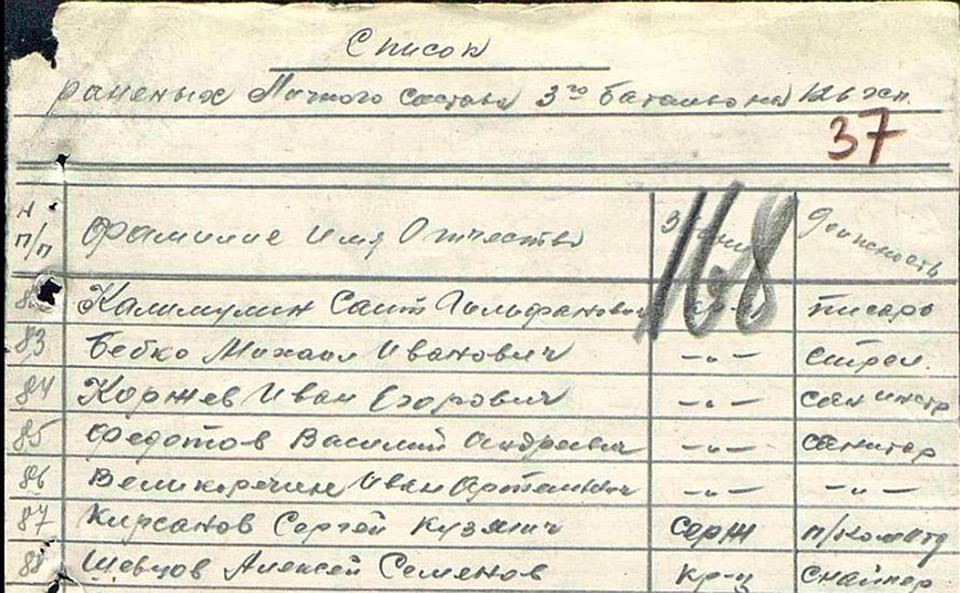 Список
раненых Личного состава 3го батальона
37
168
N п/п Фамилие Имя Отчество Звание Должность
Калимулин Саит писарь
83 Бебко Михаил Иванович -"- стрел.
84 Коржев Иван Егорович -"- санинстр
85 Федотов Василий Андреевич -"- санитар
86 Великоречин Иван -"- -"-
87 Кирсанов Сергей Кузьмич серж п/комотд
88 Шевцов Алексей Семенов кр-ц снайпер